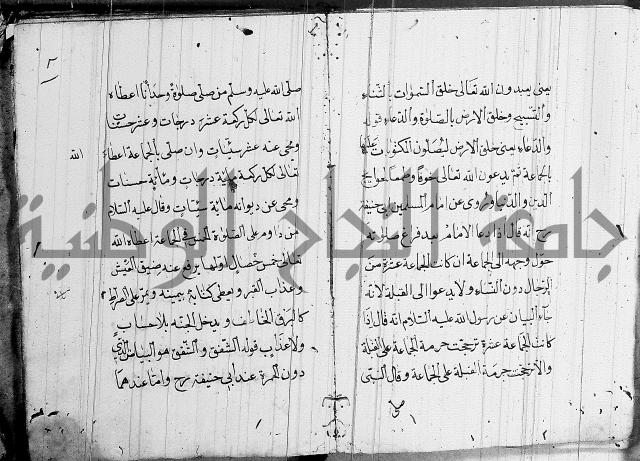 يعنى يعبدون الله تعالى خلق السموات بالثناء
والتسبيح وخلق الارض بالصلوة والدعاء قوله
والدعاء يعنى خلق الارض ليصلون المكتوبات عليها
بالجماعة ثم يدعون الله تعالى خوفا وطمعا لحوايج
الدين والدنيا وروى عن امام المسلمين ابى حنيفة
رح انه قال اذا دعا الامام بعد فراغ صلاته
حول وجهه الى الجماعة ان كانت الجماعة عشرة من
الرجال دون النساء ولا يدعوا الى القبلة لانه
جاء البيان عن رسول الله عليه السلام انه قال اذا
كانت الجماعة عشرة ترجحت حرمة الجماعة على القبلة
والا ترجحت حرمة القبلة على الجماعة وقال النبى
صلى
صلى الله عليه وسلم من صلى صلوة وحدانا اعطاه
الله تعالى لكل ركعة عشر درجات وعشر حسنات
ومحى عنه عشر سيئات وان صلى بالجماعة اعطاه
الله
تعالى لكل ركعة مائة درجات ومائة حسنات
ومحى عن ديوانه مائة سيئات وقال عليه السلام
من داوم على الصلوة الخمس فى الجماعة اعطاه الله
تعالى خمس خصال اولها يرفع عنه ضيق العيش
وعذاب القبر ويعطى كتابه بيمينه ويمر على الصراط
كالبرق الخاطف ويدخل الجنة بلا حساب
ولا عذاب قوله الشفق والشفق هو البياض الذى
دون الحمرة عند ابى حنيفة رح واما عندهما
جامعة النجاح الوطنية